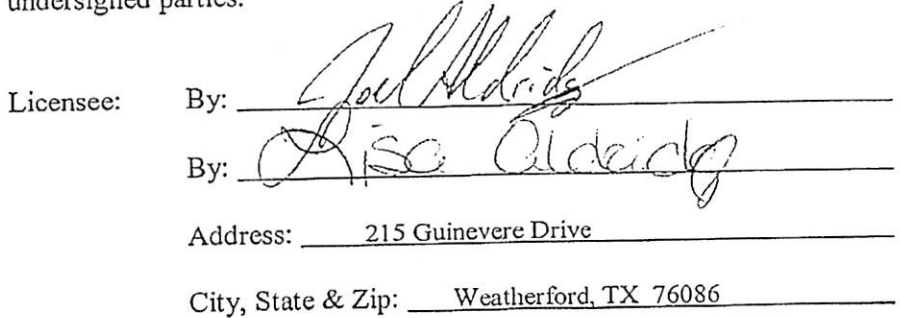 undersigned parties.
Licensee: By: Joel Aldridge
By: Lisa Aldridge
Address: 215 Guinevere Drive
City, State & Zip: Weatherford, TX 76086